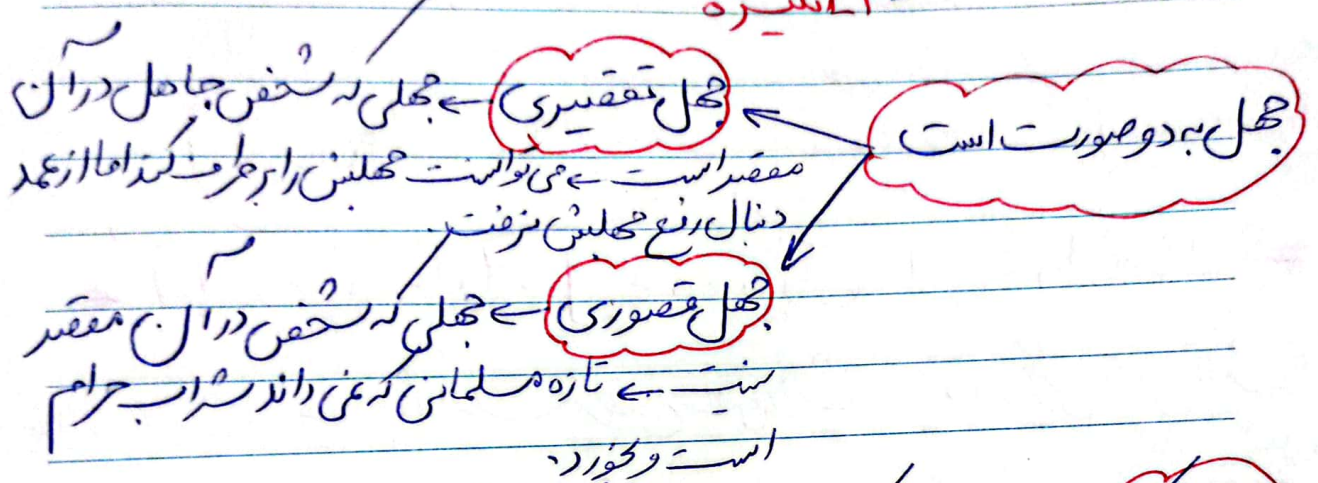 جهل به دو صورت است
جهل تقصیری ← جهلی که شخص جاهل در آن
مقصر است ← می توانست جهلش را برطرف کند اما از عمد
دنبال رفع جهلش نرفت.
جهل قصوری ← جهلی که شخص در آن مقصر
نیست ← تازه مسلمانی که نمی داند شراب حرام
است و بخورد.